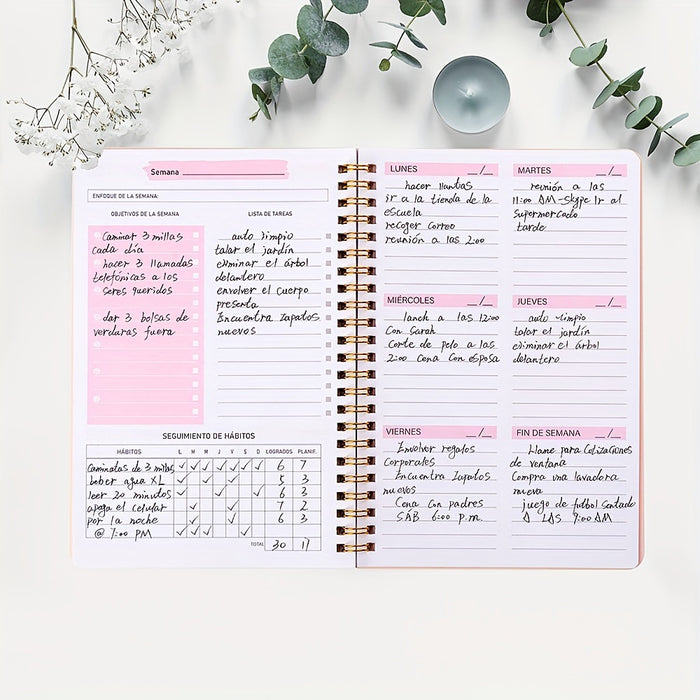 Semana
ENFOQUE DE LA SEMANA:
OBJETIVOS DE LA SEMANA
Caminar 3 millas
cada día
hacer 3 llamadas
telefónicas a los
seres queridos
dar 3 bolsas de
verduras fuera
LISTA DE TAREAS
auto limpio
talar el jardín
eliminar el árbol
delantero
envolver el cuerpo
presenta
Encuentra Zapatos
nuevos
SEGUIMIENTO DE HÁBITOS
HÁBITOS L M M J V S D LOGRADOS PLANIF.
Caminatas de 3 millas ✓ ✓ ✓ ✓ ✓ ✓ ✓ 6 7
beber agua XL 5 3
leer 20 minutos 6 3
apaga el celular 7 2
por la noche 6 3
@ 7:00 PM
TOTAL 30 17
LUNES __/__
hacer llantas
ir a la tienda de la
escuela
recoger correo
reunión a las 2:00
MARTES __/__
reunión a las
11:00 AM-skype Ir al
supermercado
tarde
MIÉRCOLES __/__
lanch a las 12:00
Con Sarah
Corte de pelo a las
2:00 Cena Con esposa
JUEVES __/__
auto limpio
talar el jardín
eliminar el árbol
delantero
VIERNES __/__
Envolver regalos
Corporales
Encuentra Zapatos
nuevos
Cena con padres
SÁB 6:00 p.m.
FIN DE SEMANA __/__
Llame para Cotizaciones
de ventana
Compra una lavadora
nueva
juego de futbol Sentado
A LAS 9:00 AM